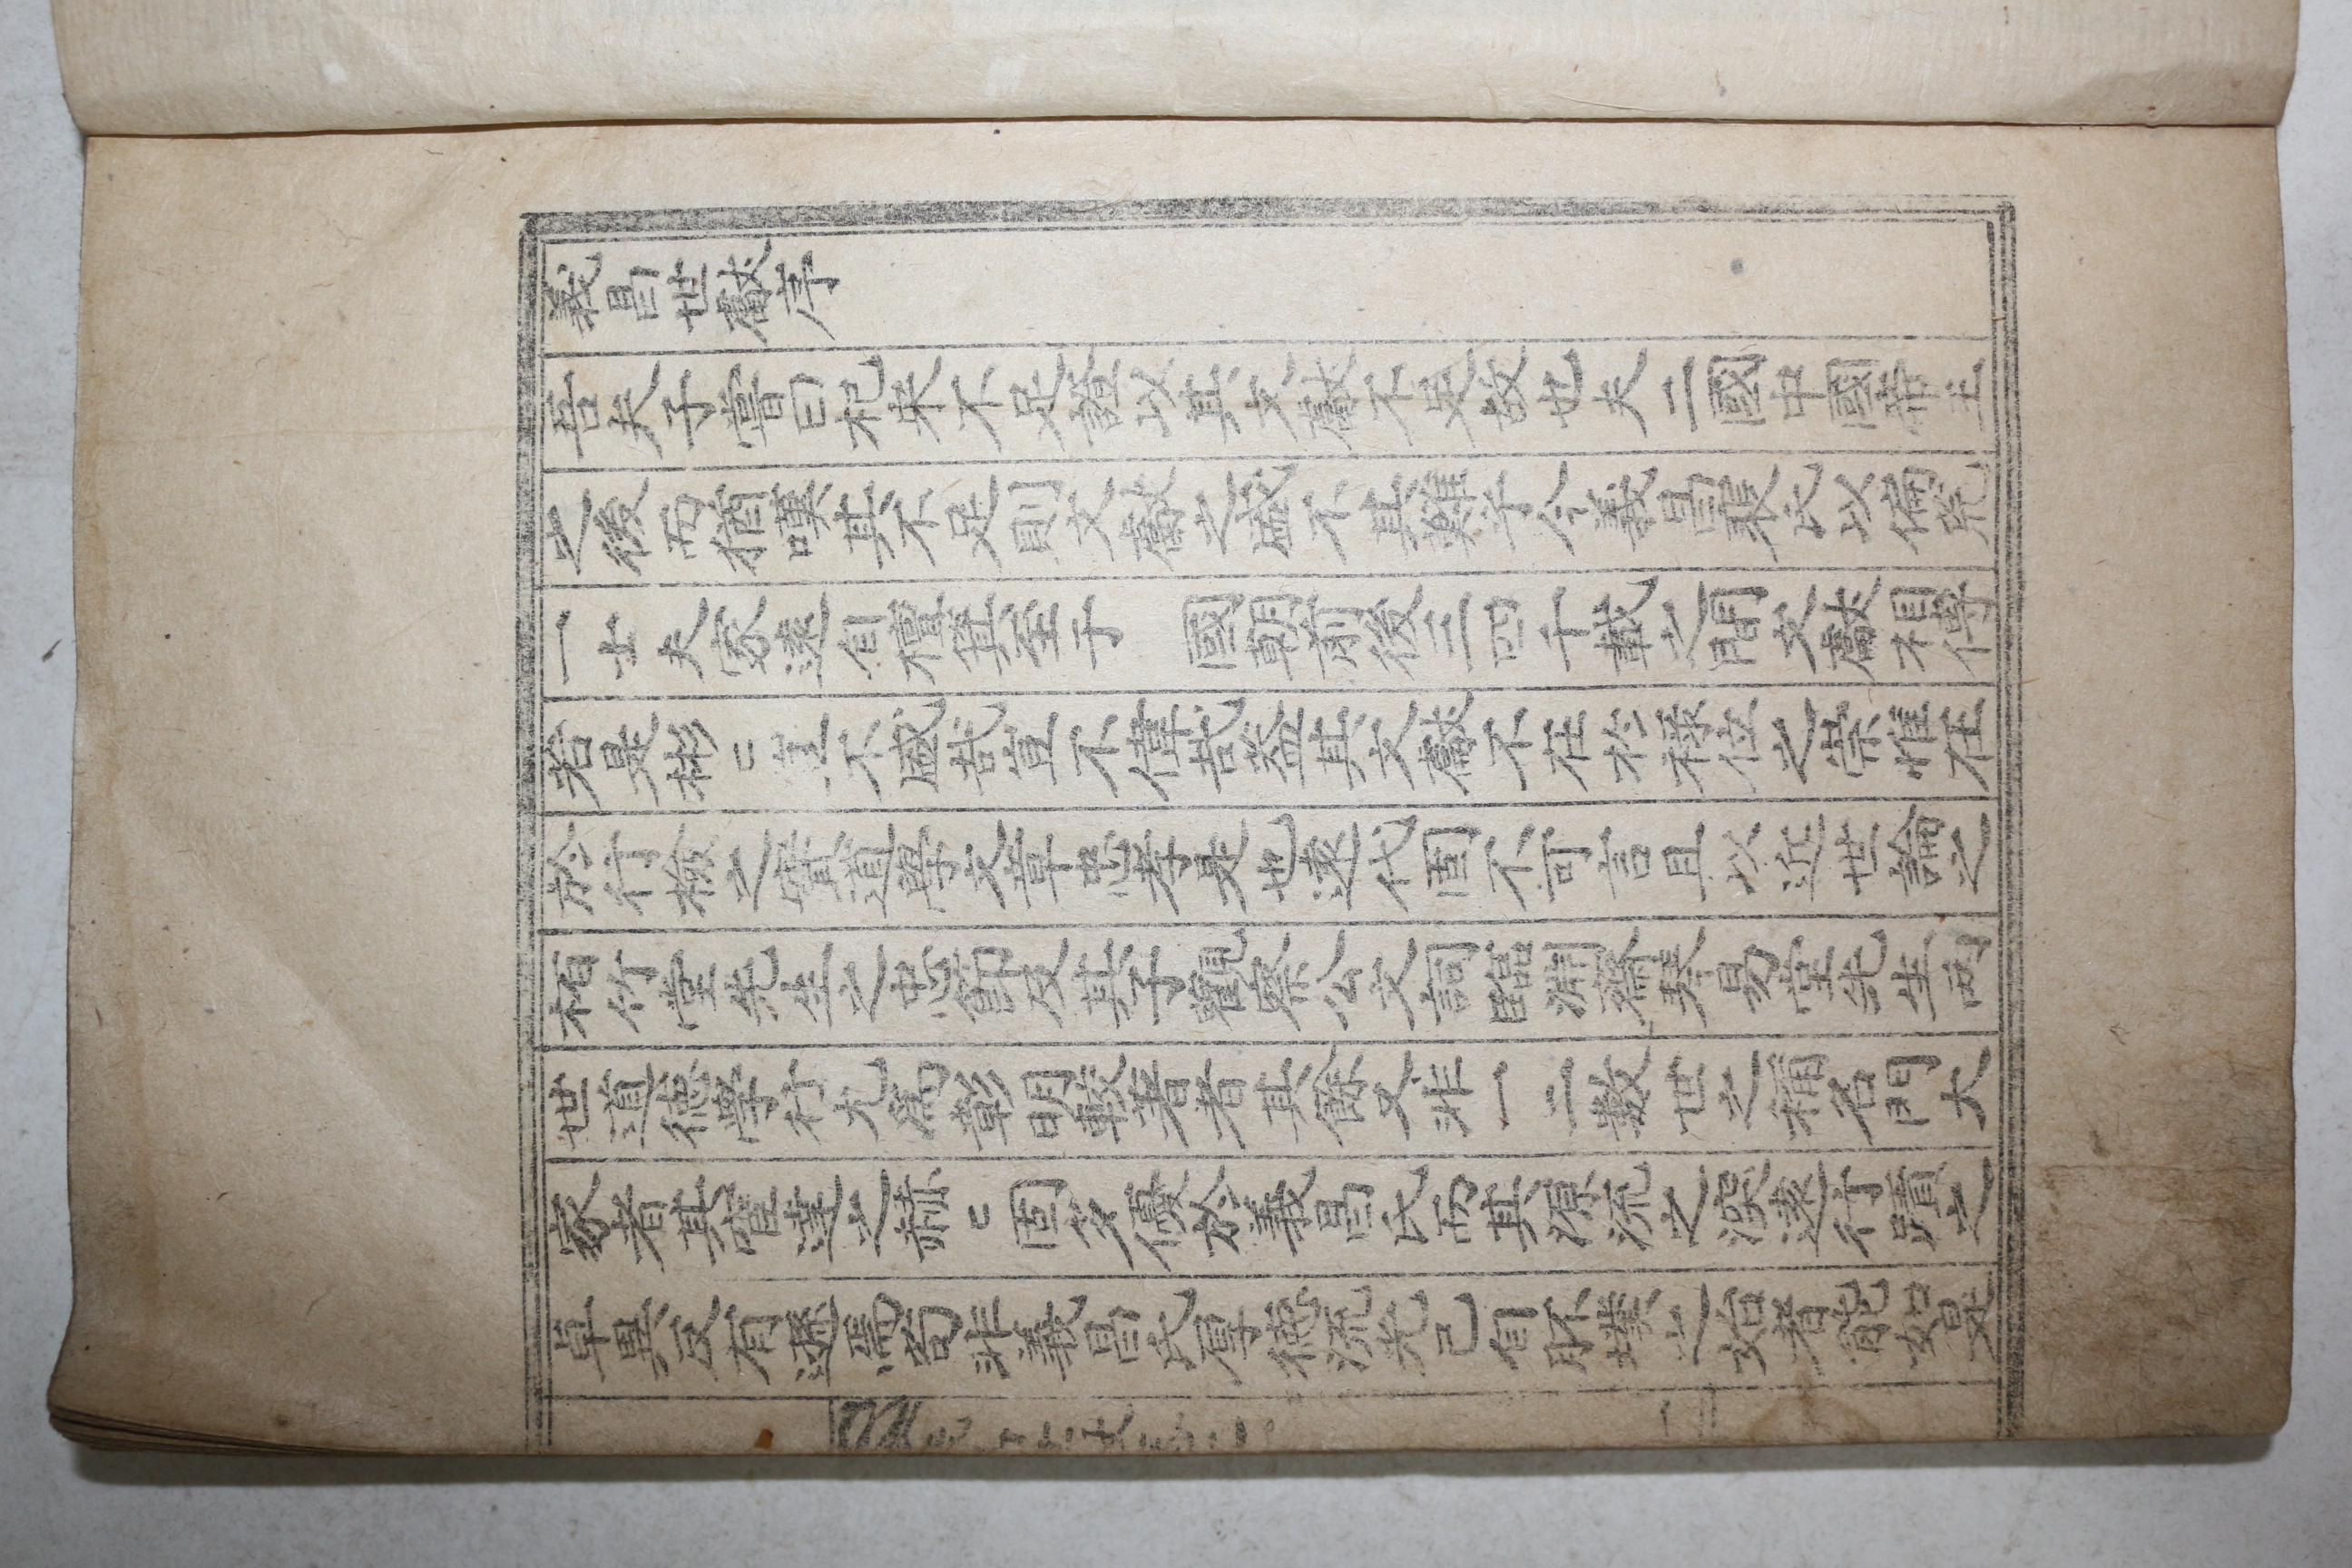 義昌世獻序
吾夫子嘗曰杞宋不足證以其文獻不足故也夫二國中國帝王
之後而猶嘆其不足則文獻之盛不其難乎今義昌裴氏以偏荒
一士夫家遠自檀箕至于 國朝前後三四千載之間文獻相傳
若是彬〻豈不盛哉豈不偉哉盖其文獻不在於祿位之崇惟在
於行檢之實道學文章忠孝是也遠代固不可言且以近世論之
栢竹堂先生之忠節及其子觀察公文詞臨淵齋琴易堂先生兩
世道德學行尤爲彰明較著者其餘又非一二數世之稱名門大
家者其宦達之赫〻固多優於義昌氏而其源流之深遠行蹟之
卓異反有遜焉苟非義昌氏厚德流光已自胚墣之始者能如是